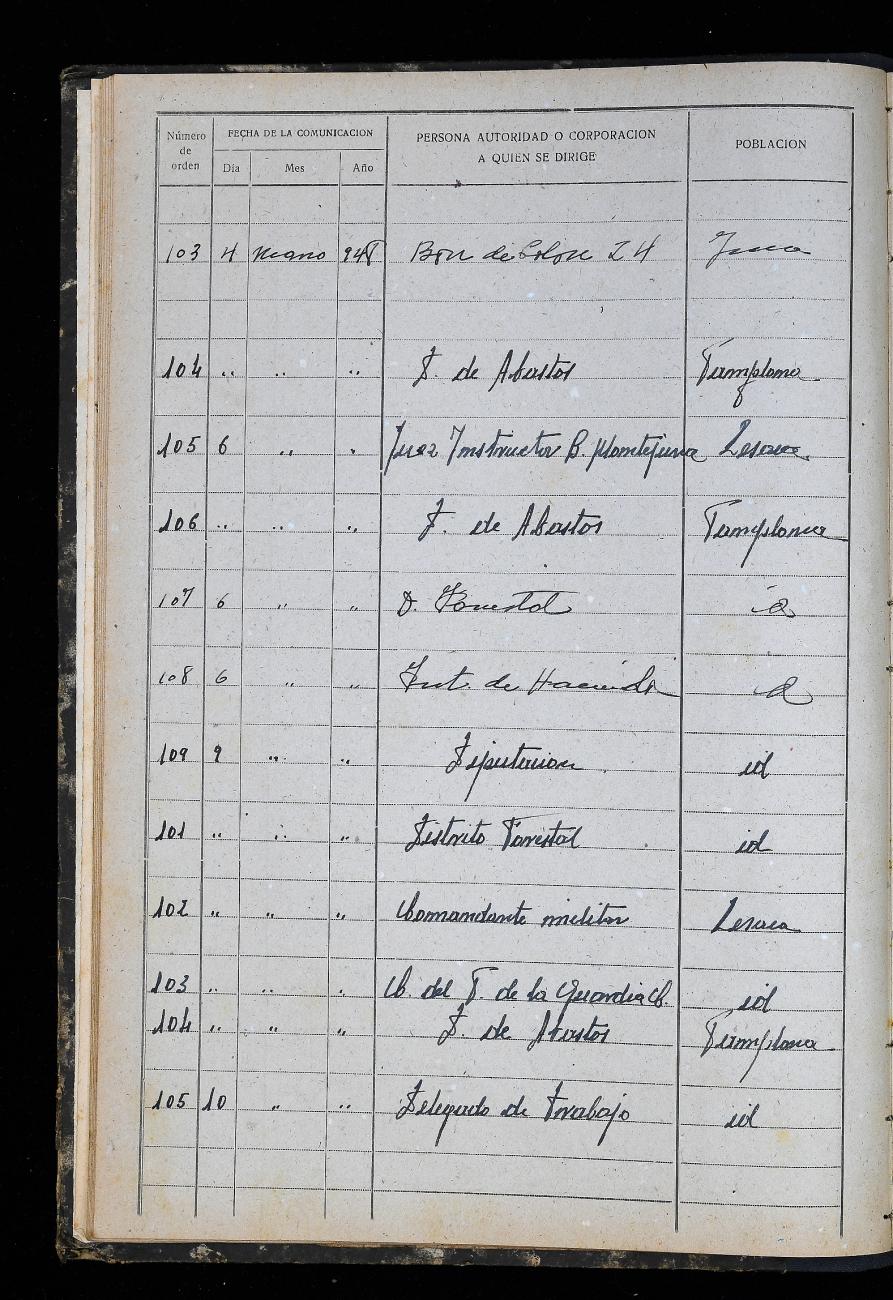 Número de orden FECHA DE LA COMUNICACION PERSONA AUTORIDAD O CORPORACION A QUIEN SE DIRIGE POBLACION
Día Mes Año
103 4 Marzo 948 Bon de Colon 24
104 .. .. .. D. de Abastos Pamplona
105 6 .. . Juez Instructor B. Montejurra Lesaca
106 .. .. .. D. de Abastos Pamplona
107 6 " " D. Forestal id
108 6 " " de Hacienda id
109 9 .. .. Diputacion id
101 .. .. .. Distrito Forestal id
102 " " " Comandante militar Lesaca
103 .. .. . C. del P. de la Guardia C. id
104 .. " " D. de Abastos Pamplona
105 10 " .. Delegado de Trabajo id